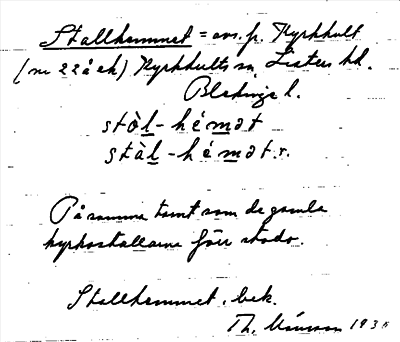 Stallhemmet = avs. fr. Kyrkhult
(nr 22 å ek) Kyrkhults sn. Listers hd.
Blekinge l.
stòl-hémət
stàl-hémət. r.
På samma tomt som de gamla
kyrkostallarne förr stodo.
Stallhemmet. bek.
Th.